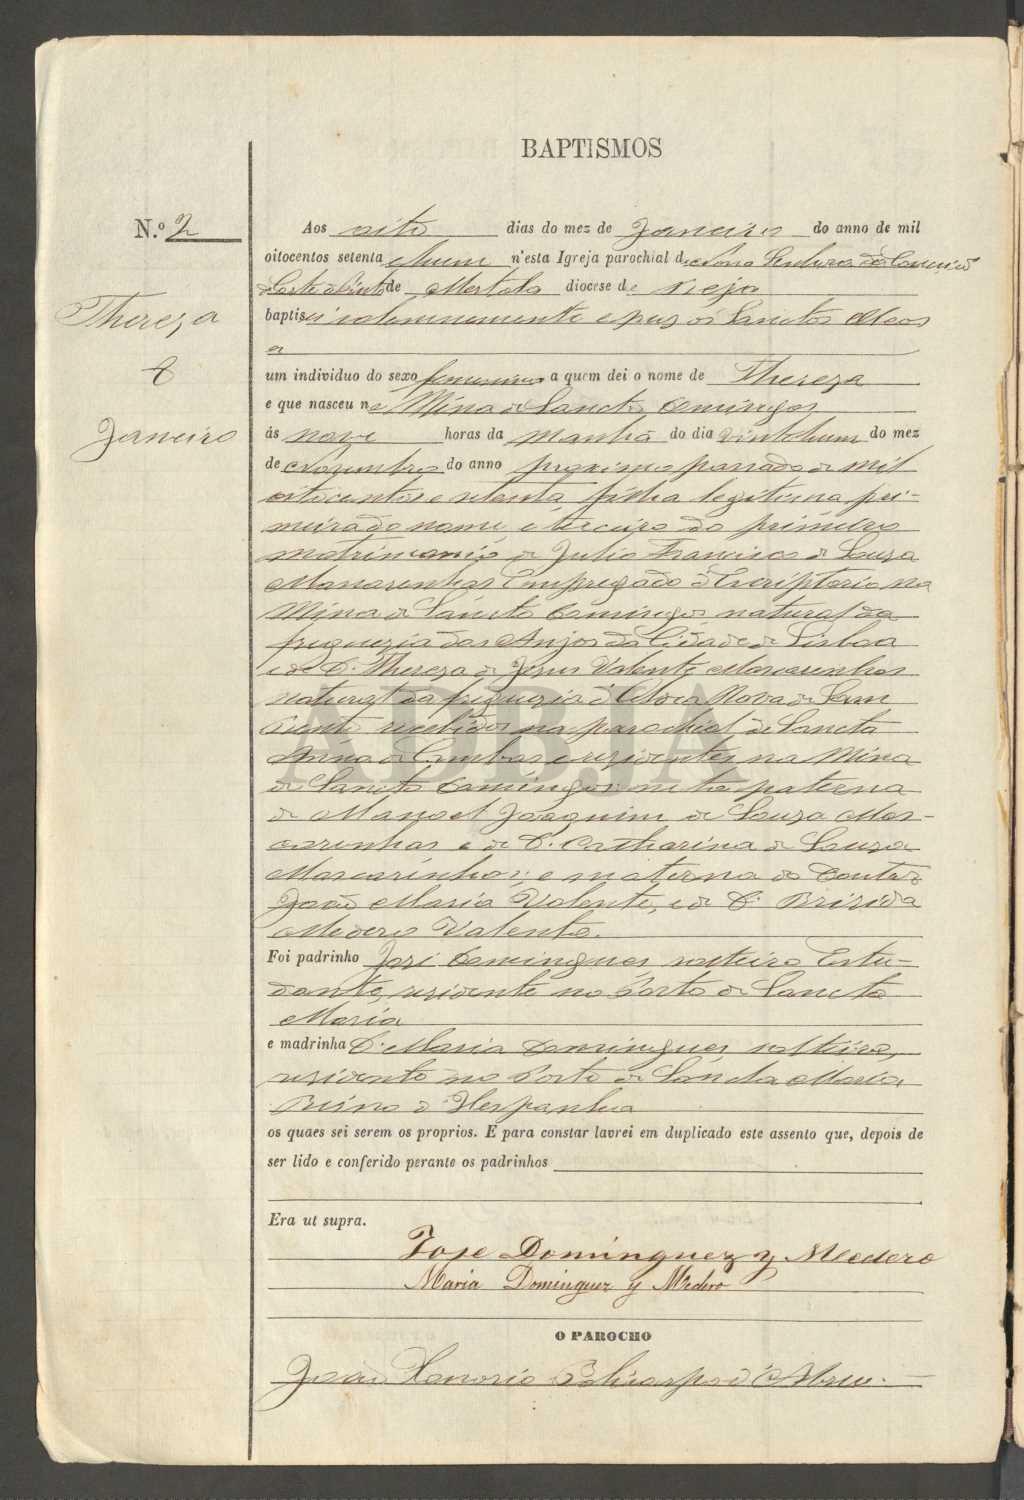 BAPTISMOS
N.º 2
Aos oito dias do mez de Janeiro do anno de mil
oitocentos setenta e hum n'esta Igreja parochial de Nossa Senhora da Conceição
de Mertola diocese de Beja
baptisei solemnemente e puz os Sanctos Oleos
a
Thereza
8
Janeiro
um individuo do sexo femenino a quem dei o nome de Thereza
e que nasceu na Mina de Sancto Domingos
ás nove horas da manhã do dia vinte hum do mez
de Novembro do anno proximo passado de mil
oitocentos e setenta, filha legitima, pri-
meira do nome, e terceira do primeiro
matrimonio de Julio Francisco de Souza
Mascarenhas Empregado d'Escriptorio na
Mina de Sancto Domingos natural da
freguezia dos Anjos da Cidade de Lisboa
e de D. Thereza de Jesus Valente Mascarenhas
natural da freguezia d'Aldeia Nova de Sam
Bento recebidos na parochial de Sancta
Anna de Cambas e rezidentes na Mina
de Sancto Domingos neta paterna
de Manoel Joaquim de Souza Mas-
carenhas e de D. Catharina de Souza
Mascarenhas; e materna do Doutor
João Maria Valente, e de D. Brizida
Medero Valente.
Foi padrinho José Domingues solteiro Estu-
dante, rezidente no Porto de Sancta
Maria
e madrinha D. Maria Domingues solteira,
rezidente no Porto de Sancta Maria,
Reino d'Hespanha
os quaes sei serem os proprios. E para constar lavrei em duplicado este assento que, depois de
ser lido e conferido perante os padrinhos
Era ut supra.
Jose Dominguez y Medero
Maria Dominguez y Medero
O PAROCHO
João Honorio Policarpo d'Abreu.
ADBJA